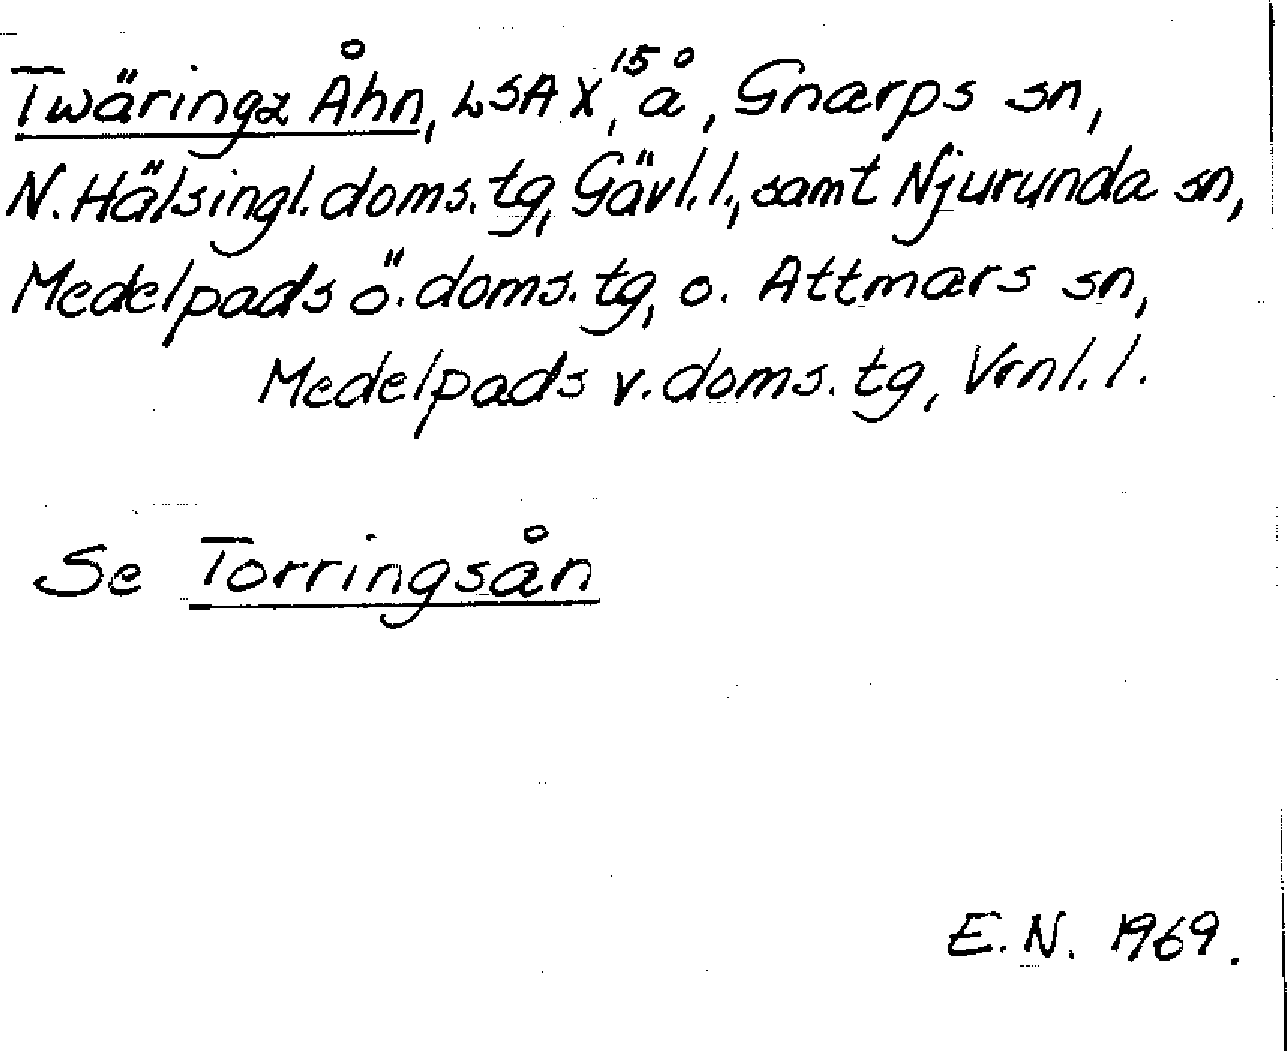 Twäringz Åhn, LSA X,¹⁵ å, Gnarps sn,
N. Hälsingl. doms. tg, Gävl. l., samt Njurunda sn,
Medelpads ö. doms. tg, o. Attmars sn,
Medelpads v. doms. tg, Vrnl. l.
Se Torringsån
E.N. 1969.